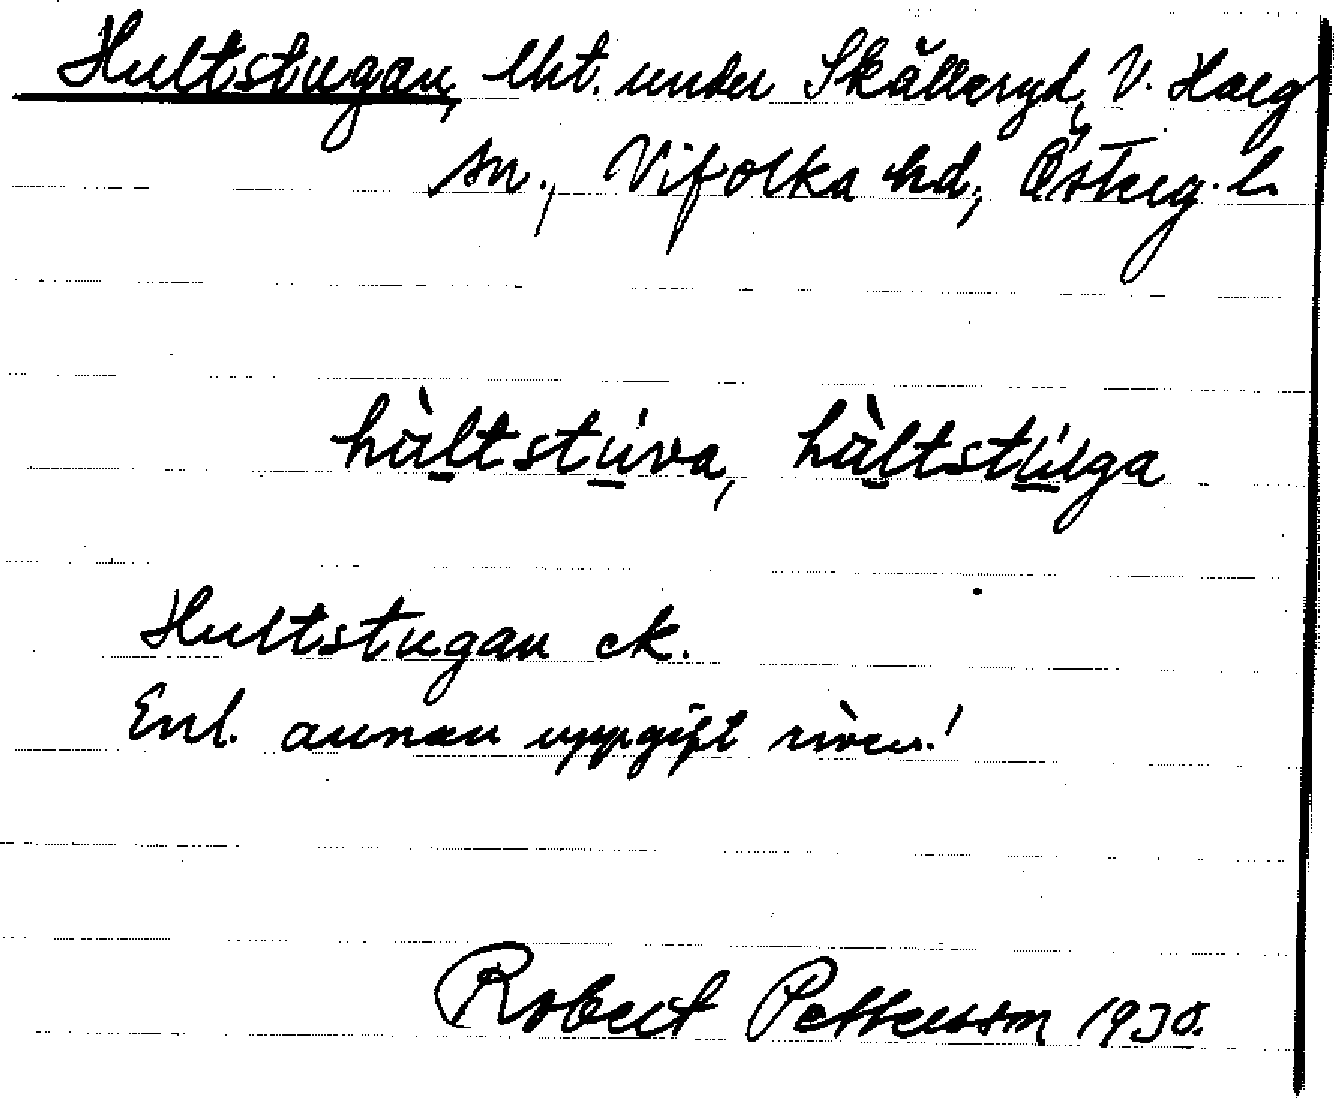 Hultstugan, lht. under Skälleryd, V. Harg
sn., Vifolka hd, Österg. l.
hùltstúva, hùltstúga
Hultstugan ek.
Enl. annan uppgift riven!
Robert Pettersson 1930.